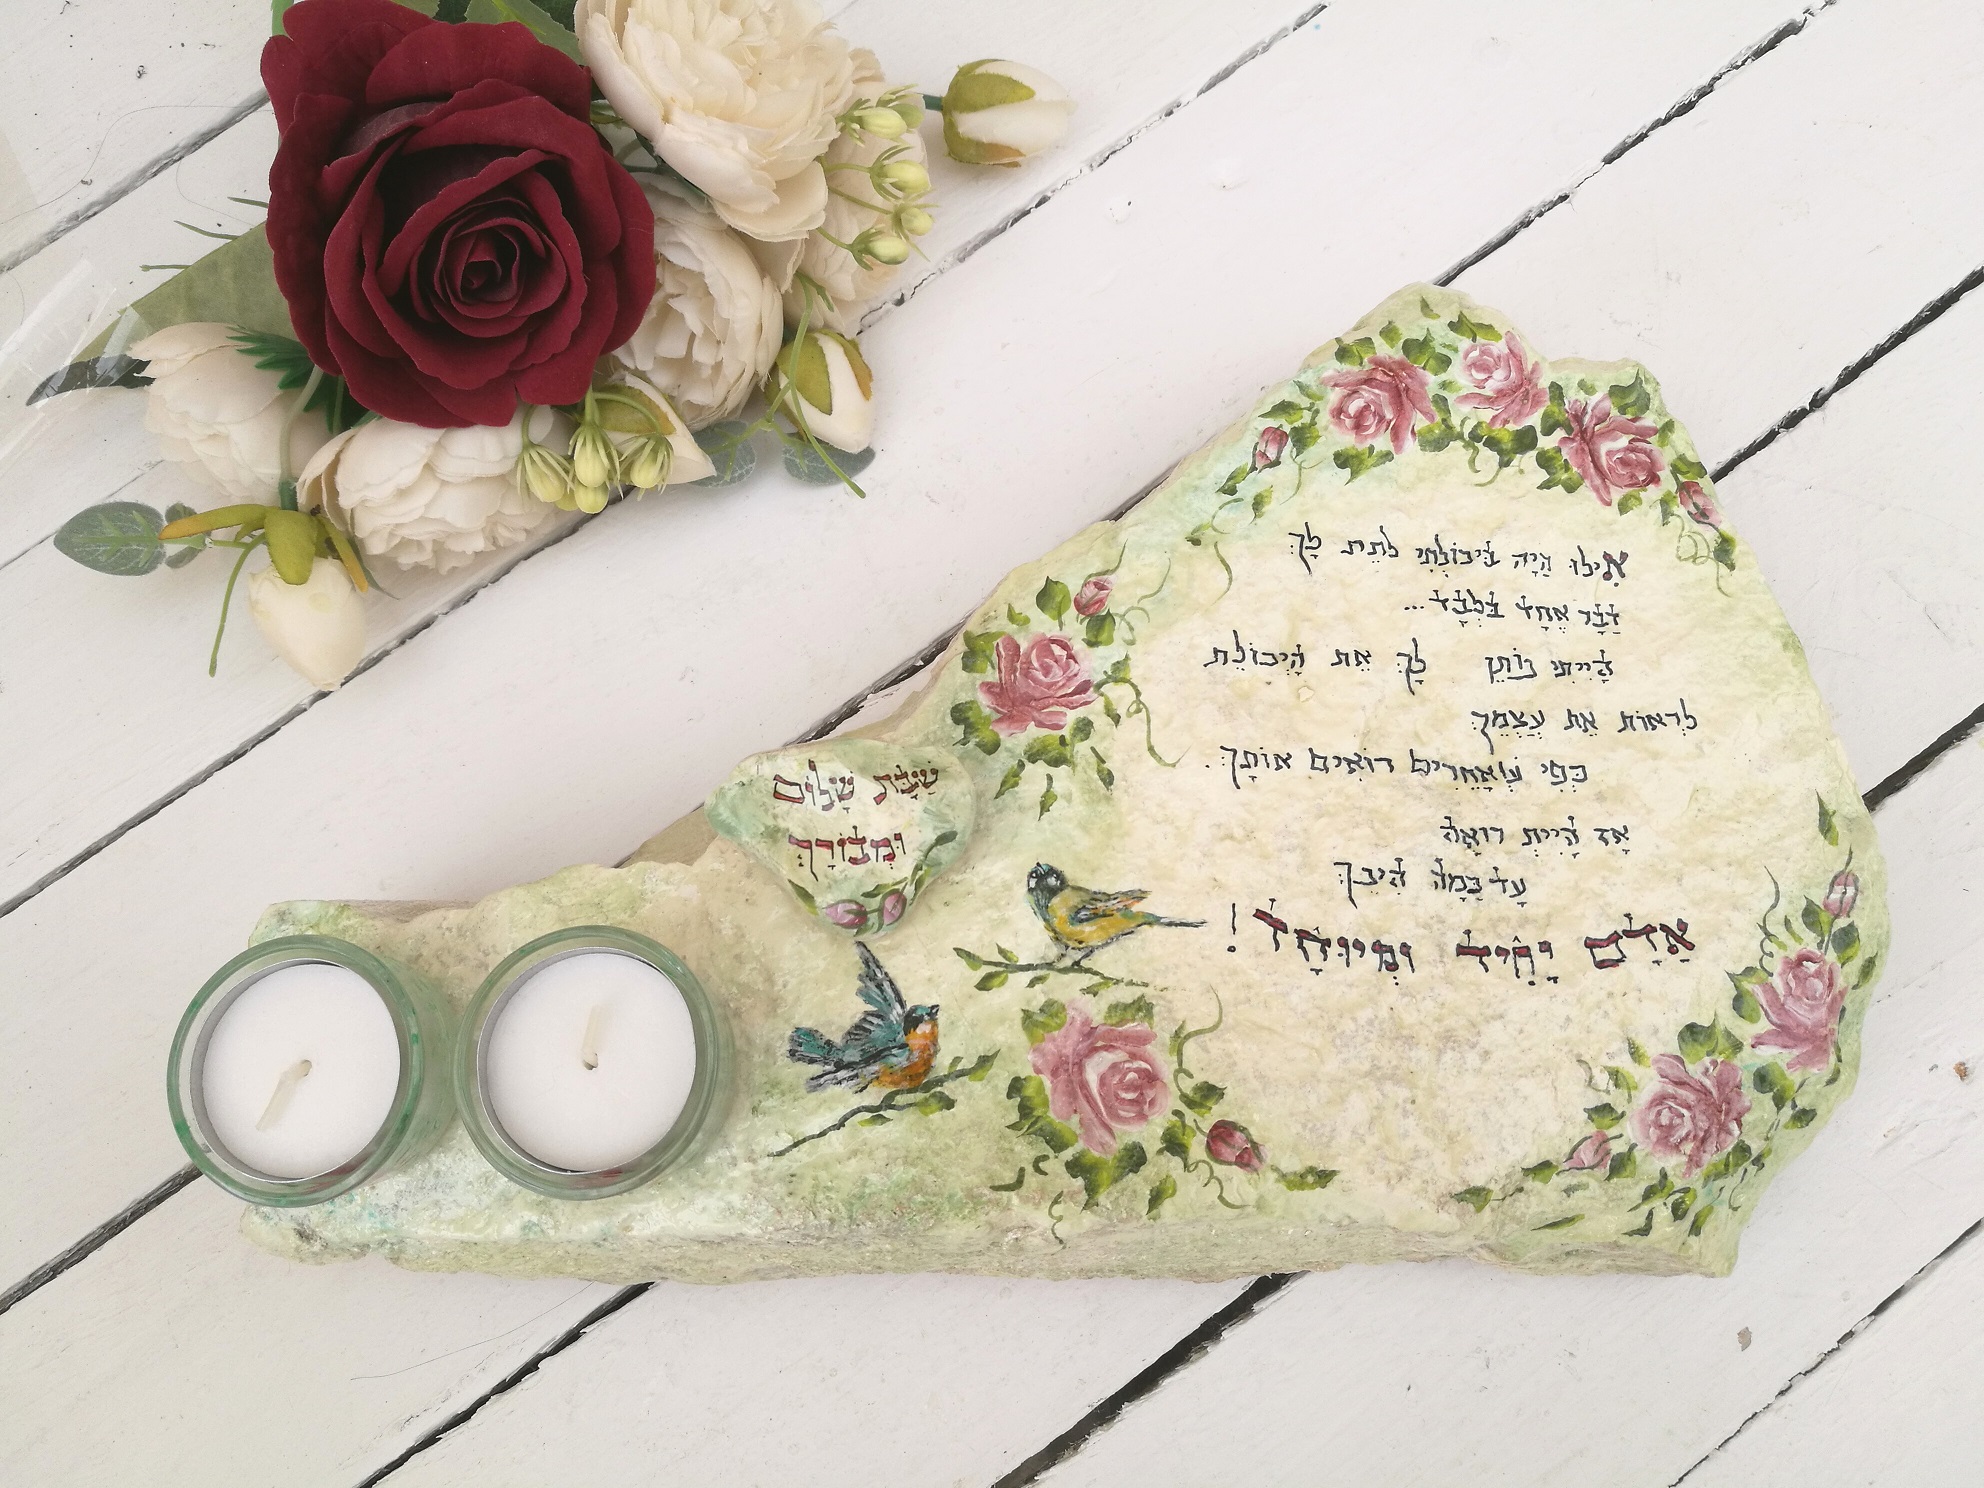 אִילוּ הָיָה בִּיכוֹלְתִּי לתֵת לָךְ
דָבָר אֶחָד בִּלְבָד...
הָיִיתִי נוֹתֵן לָךְ אֵת הָיְכוֹלֶת
לִראוֹת אֵת עַצְמֵךְ
כְּפִי שְׁאָחֵרִים רוֹאִים אוֹתָךְ.
אָז הָיִית רוֹאָה
עַד כַּמָה הִינֵךְ
אָדָם יָחִיד וּמְיוּחָד!
שַׁבָּת שָׁלוֹם
וּמְבוֹרָךְ